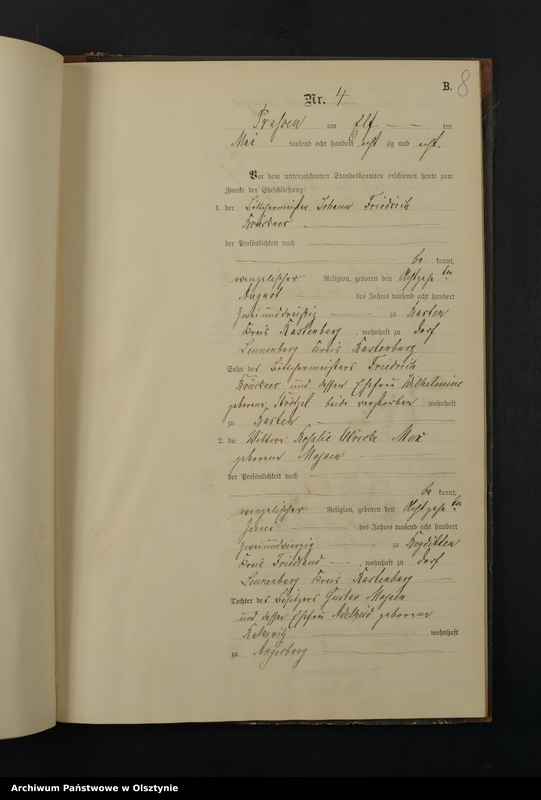 B. 8
Nr. 4
Prassen am Elf ten
Mai tausend acht hundert acht zig und acht.
Vor dem unterzeichneten Standesbeamten erschienen heute zum
Zwecke der Eheschließung:
1. der Böttchermeister Johann Friedrich
Brückner
der Persönlichkeit nach
be kannt,
evangelischer Religion, geboren den Achtzehn ten
August des Jahres tausend acht hundert
zweiunddreißig zu Barten
Kreis Rastenburg, wohnhaft zu Dorf
Leunenburg Kreis Rastenburg
Sohn des Böttchermeisters Friedrich
Brückner und dessen Ehefrau Wilhelmine
geborene Stößel beide verstorben wohnhaft
zu Barten
2. die Wittwe Rosalie Ulricke Mex
geborene Massen
der Persönlichkeit nach
be kannt,
evangelischer Religion, geboren den Achtzehn ten
Juni des Jahres tausend acht hundert
zweiundvierzig zu
Kreis Friedland, wohnhaft zu Dorf
Leunenburg Kreis Rastenburg
Tochter des Besitzers Gustav Massen
und dessen Ehefrau Adelheid geborene
wohnhaft
zu Angerburg
Archiwum Państwowe w Olsztynie